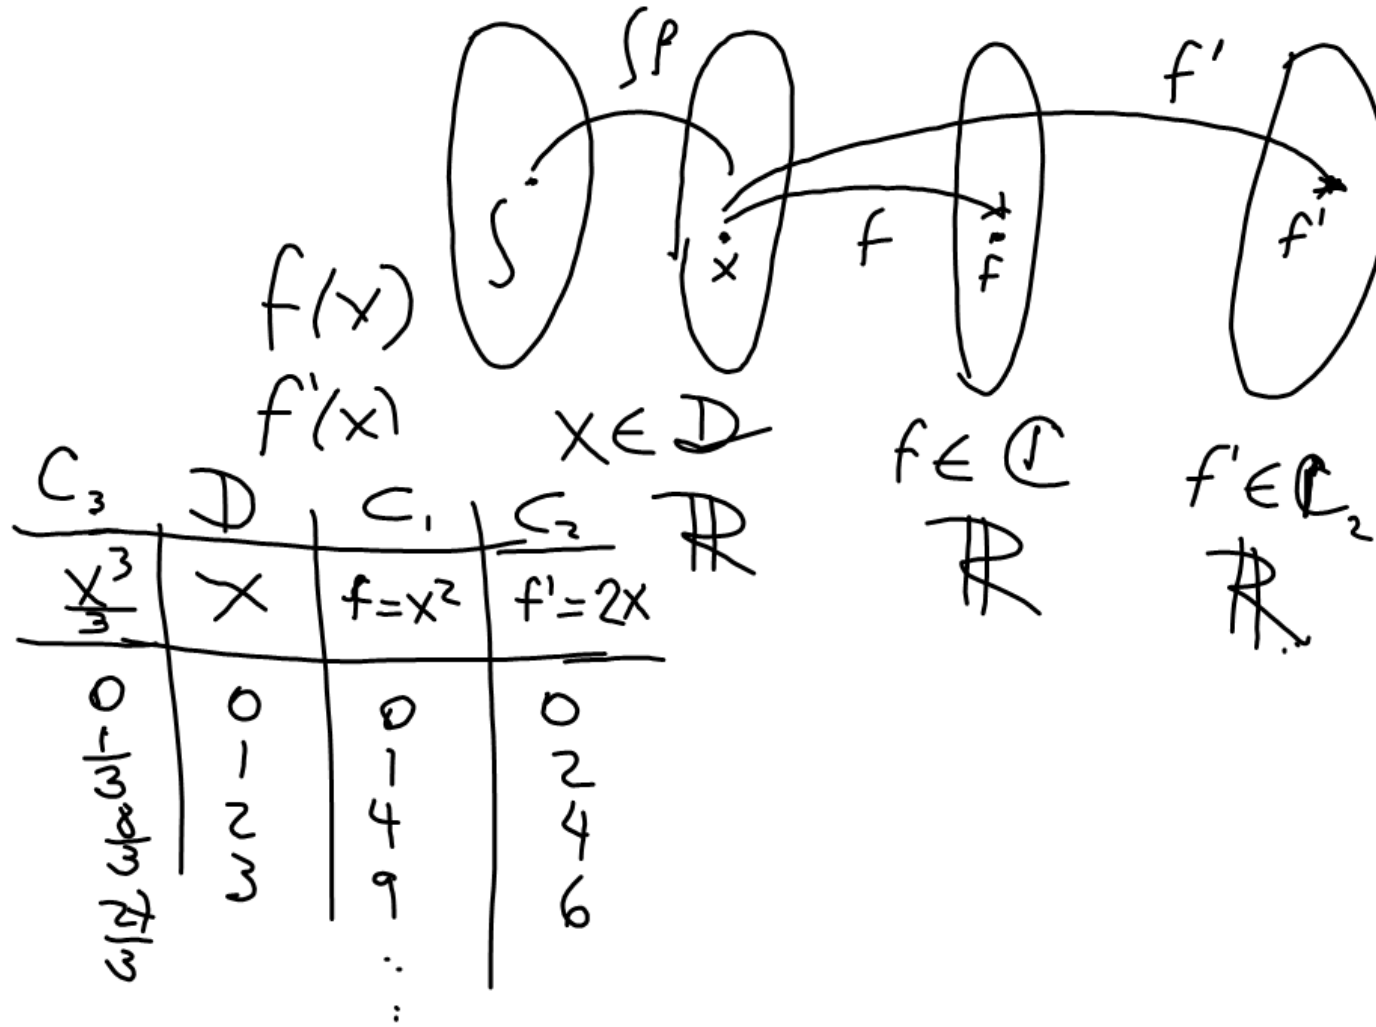 ∫f
f'
∫
x
f
f
f'
f(x)
f'(x)
x ∈ D
f ∈ C
f' ∈ C₂
ℝ
ℝ
ℝ
C₃ D C₁ C₂
x³/3 x f=x² f'=2x
0 0 0 0
1/3 1 1 2
8/3 2 4 4
27/3 3 9 6